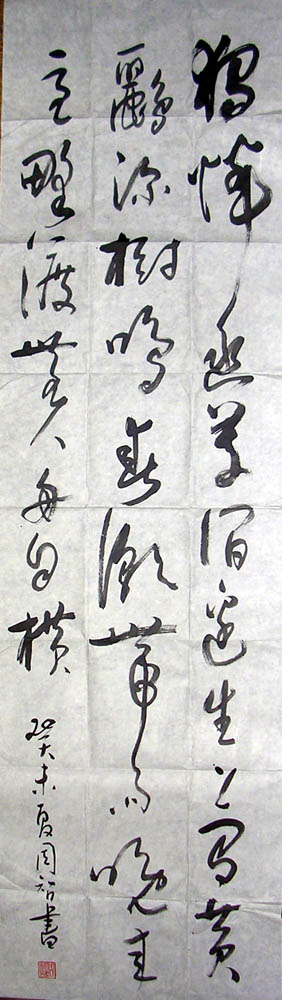 獨憐幽草澗邊生上有黃
鸝深樹鳴春潮帶雨晚來
急野渡無人舟自橫
癸未夏周智書